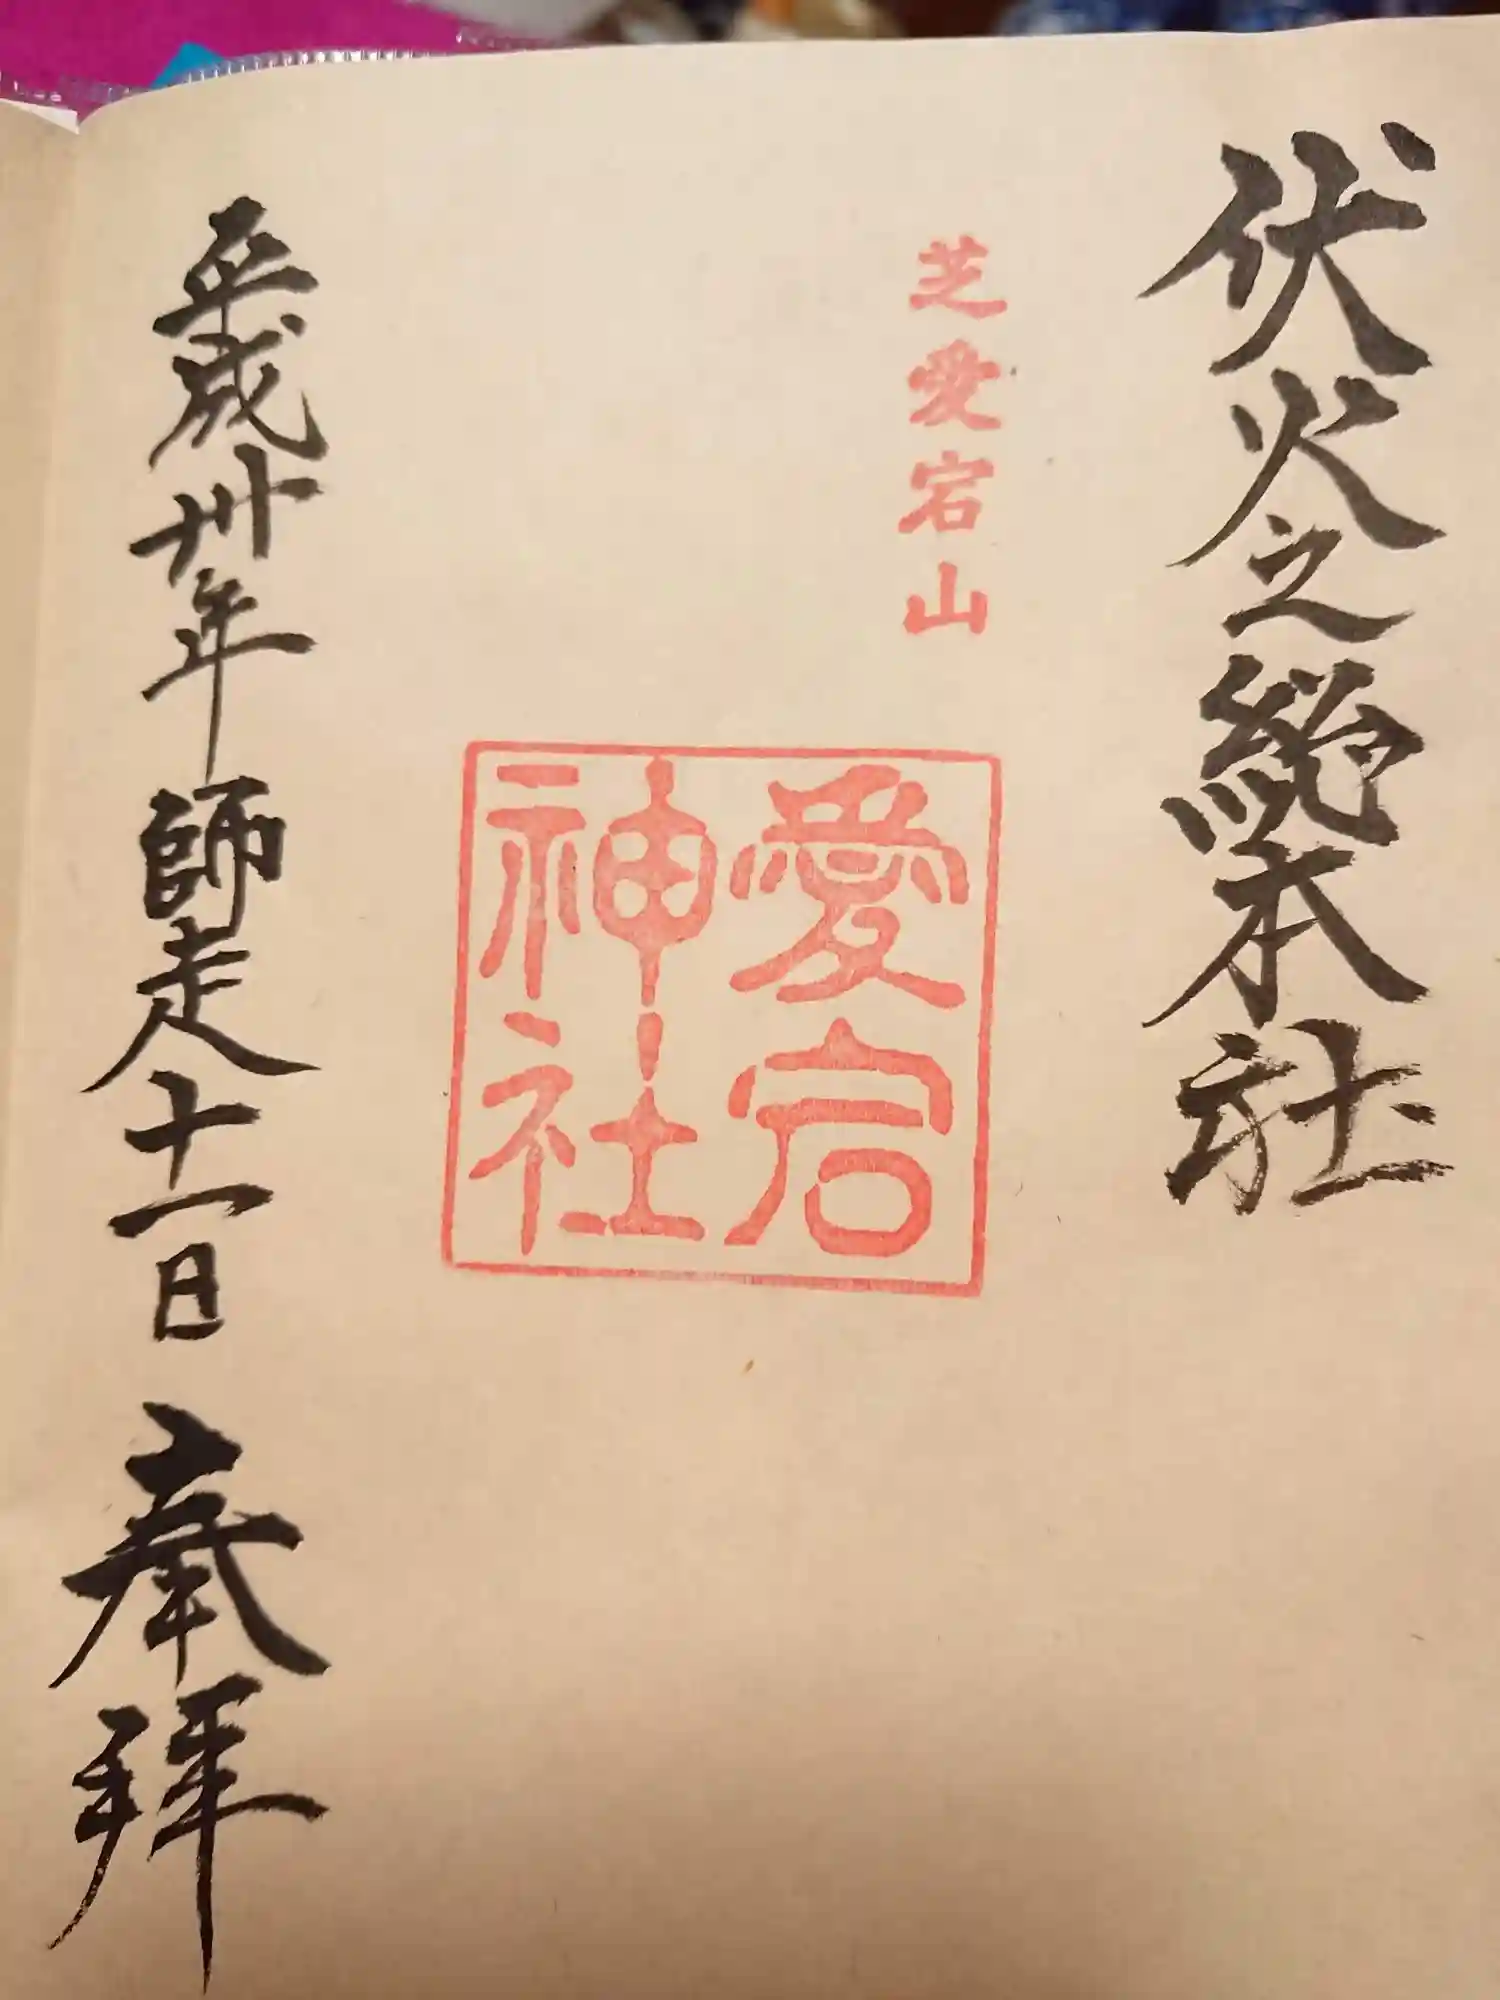 伏火之総本社
芝愛宕山
愛宕
神社
平成卅年師走十一日 奉拝